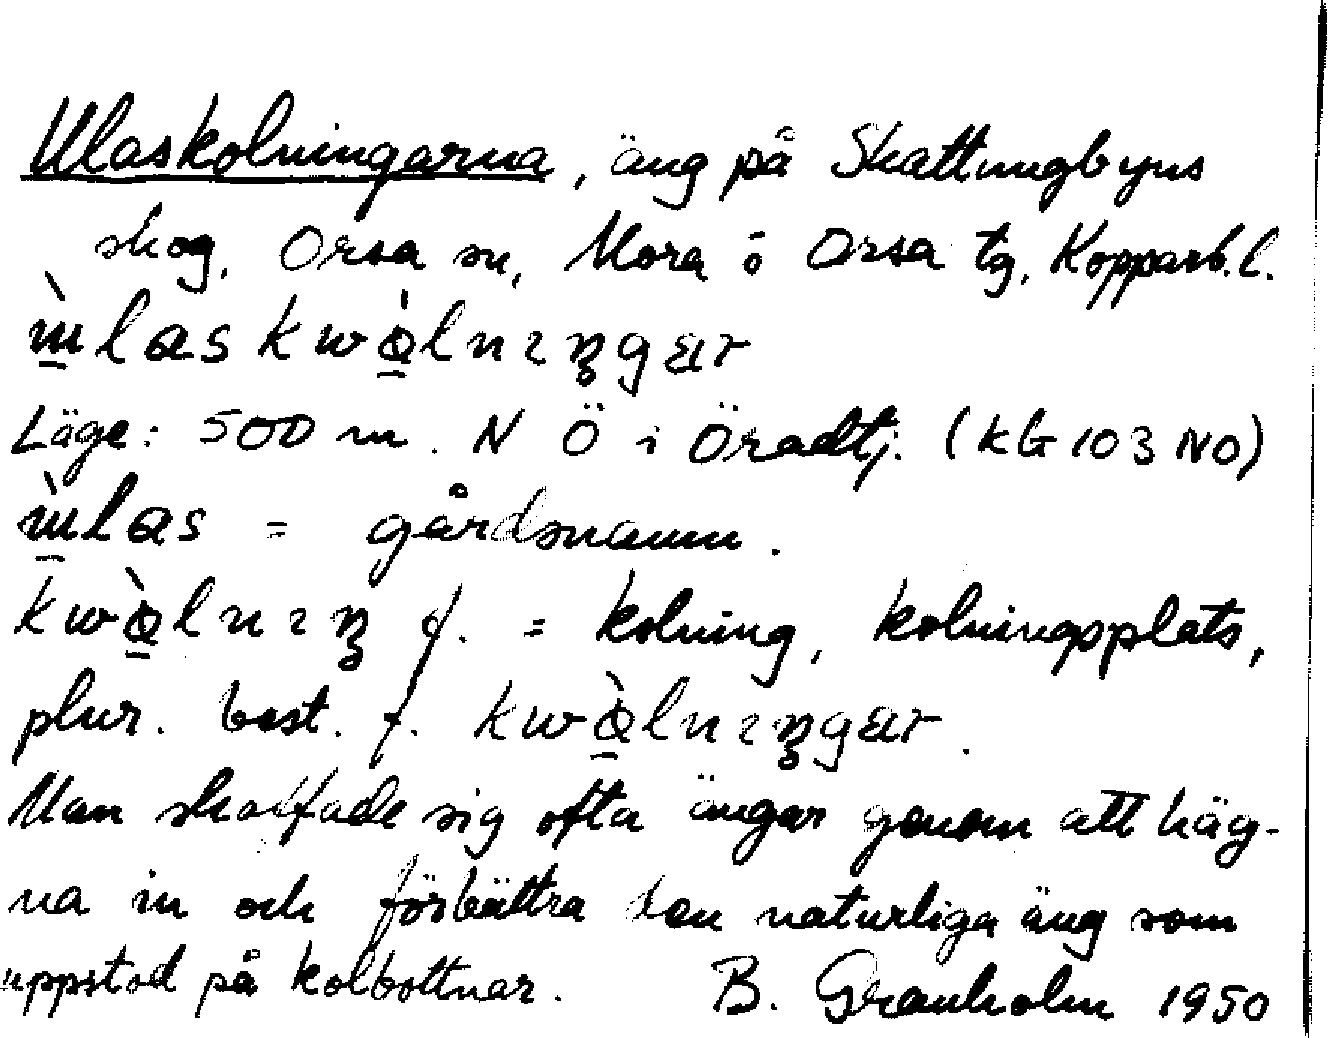 Ulaskolningarna, äng på Skattungbyns
skog, Orsa sn, Mora o Orsa tg, Kopparb. l.
ɯ̀laskwò̱lnıŋgar
Läge: 500 m. N Ö i Öradtj. (KG 103 NO)
ɯ̀las = gårdsnamn.
kwò̱lnıŋ f. = kolning, kolningsplats,
plur. best. f. kwò̱lnıŋgar.
Man skaffade sig ofta ängar genom att häg-
na in och förbättra den naturliga äng som
uppstod på kolbottnar. B. Granholm 1950